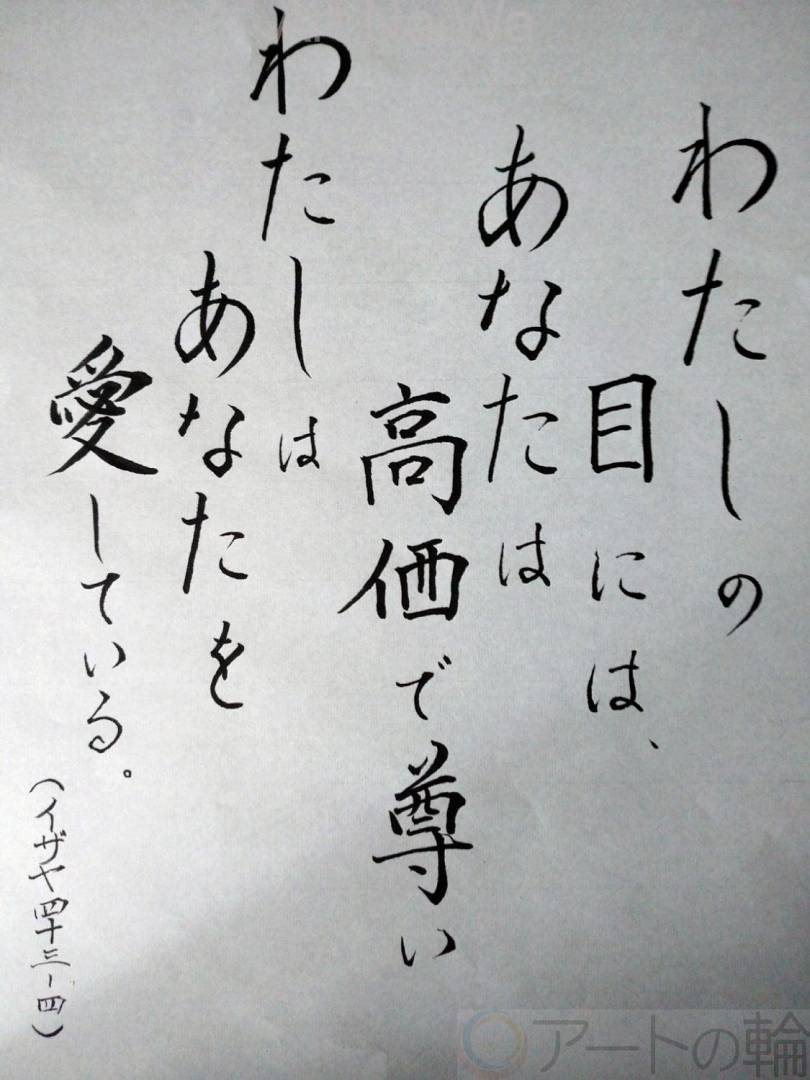 わたしの
目には、
あなたは
高価で尊い
わたしは
あなたを
愛している。
(イザヤ四十三-四)
アートの輪